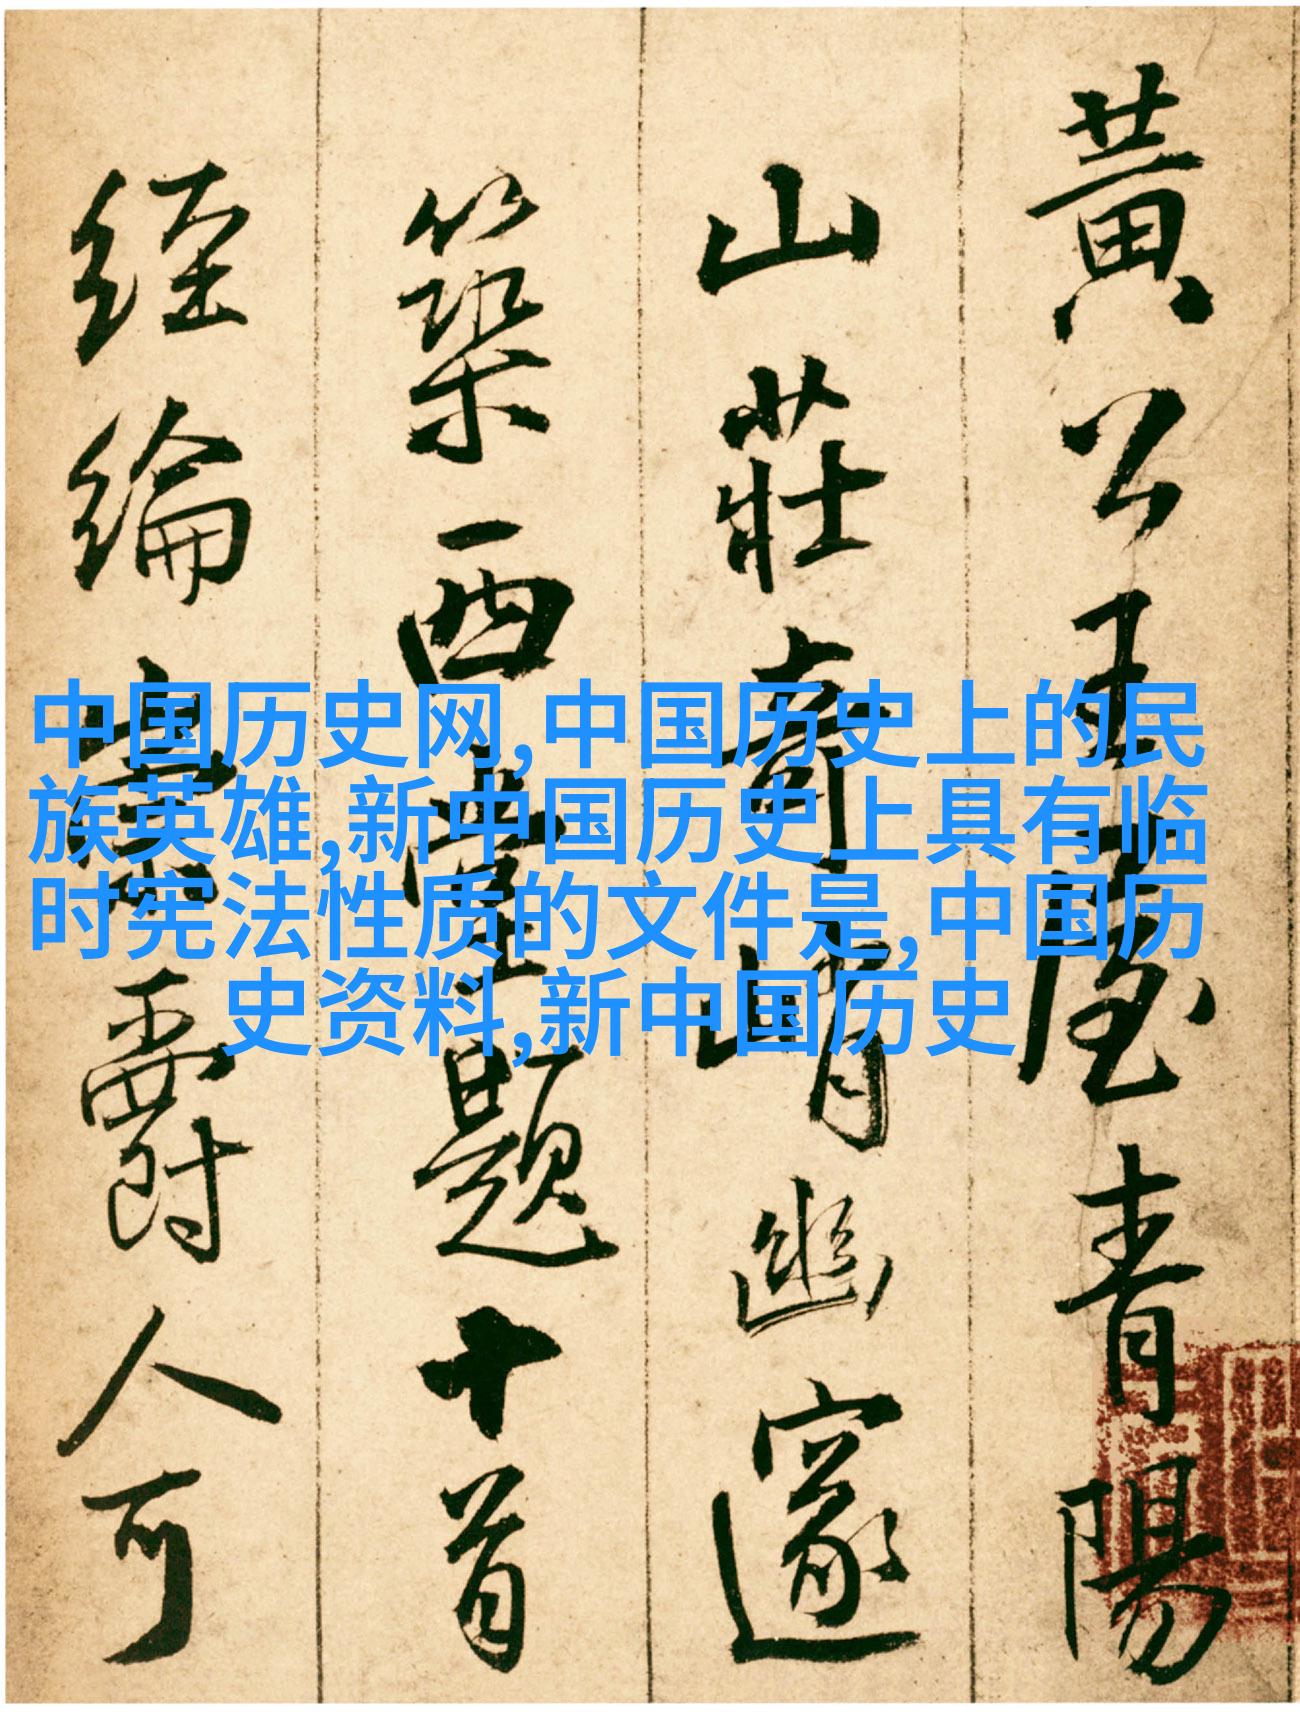 黃公王屋青陽
山莊奇峭幽邃
築西堂題十首
經綸爵人可
中国历史网,中国历史上的民
族英雄,新中国历史上具有临
时宪法性质的文件是,中国历
史资料,新中国历史